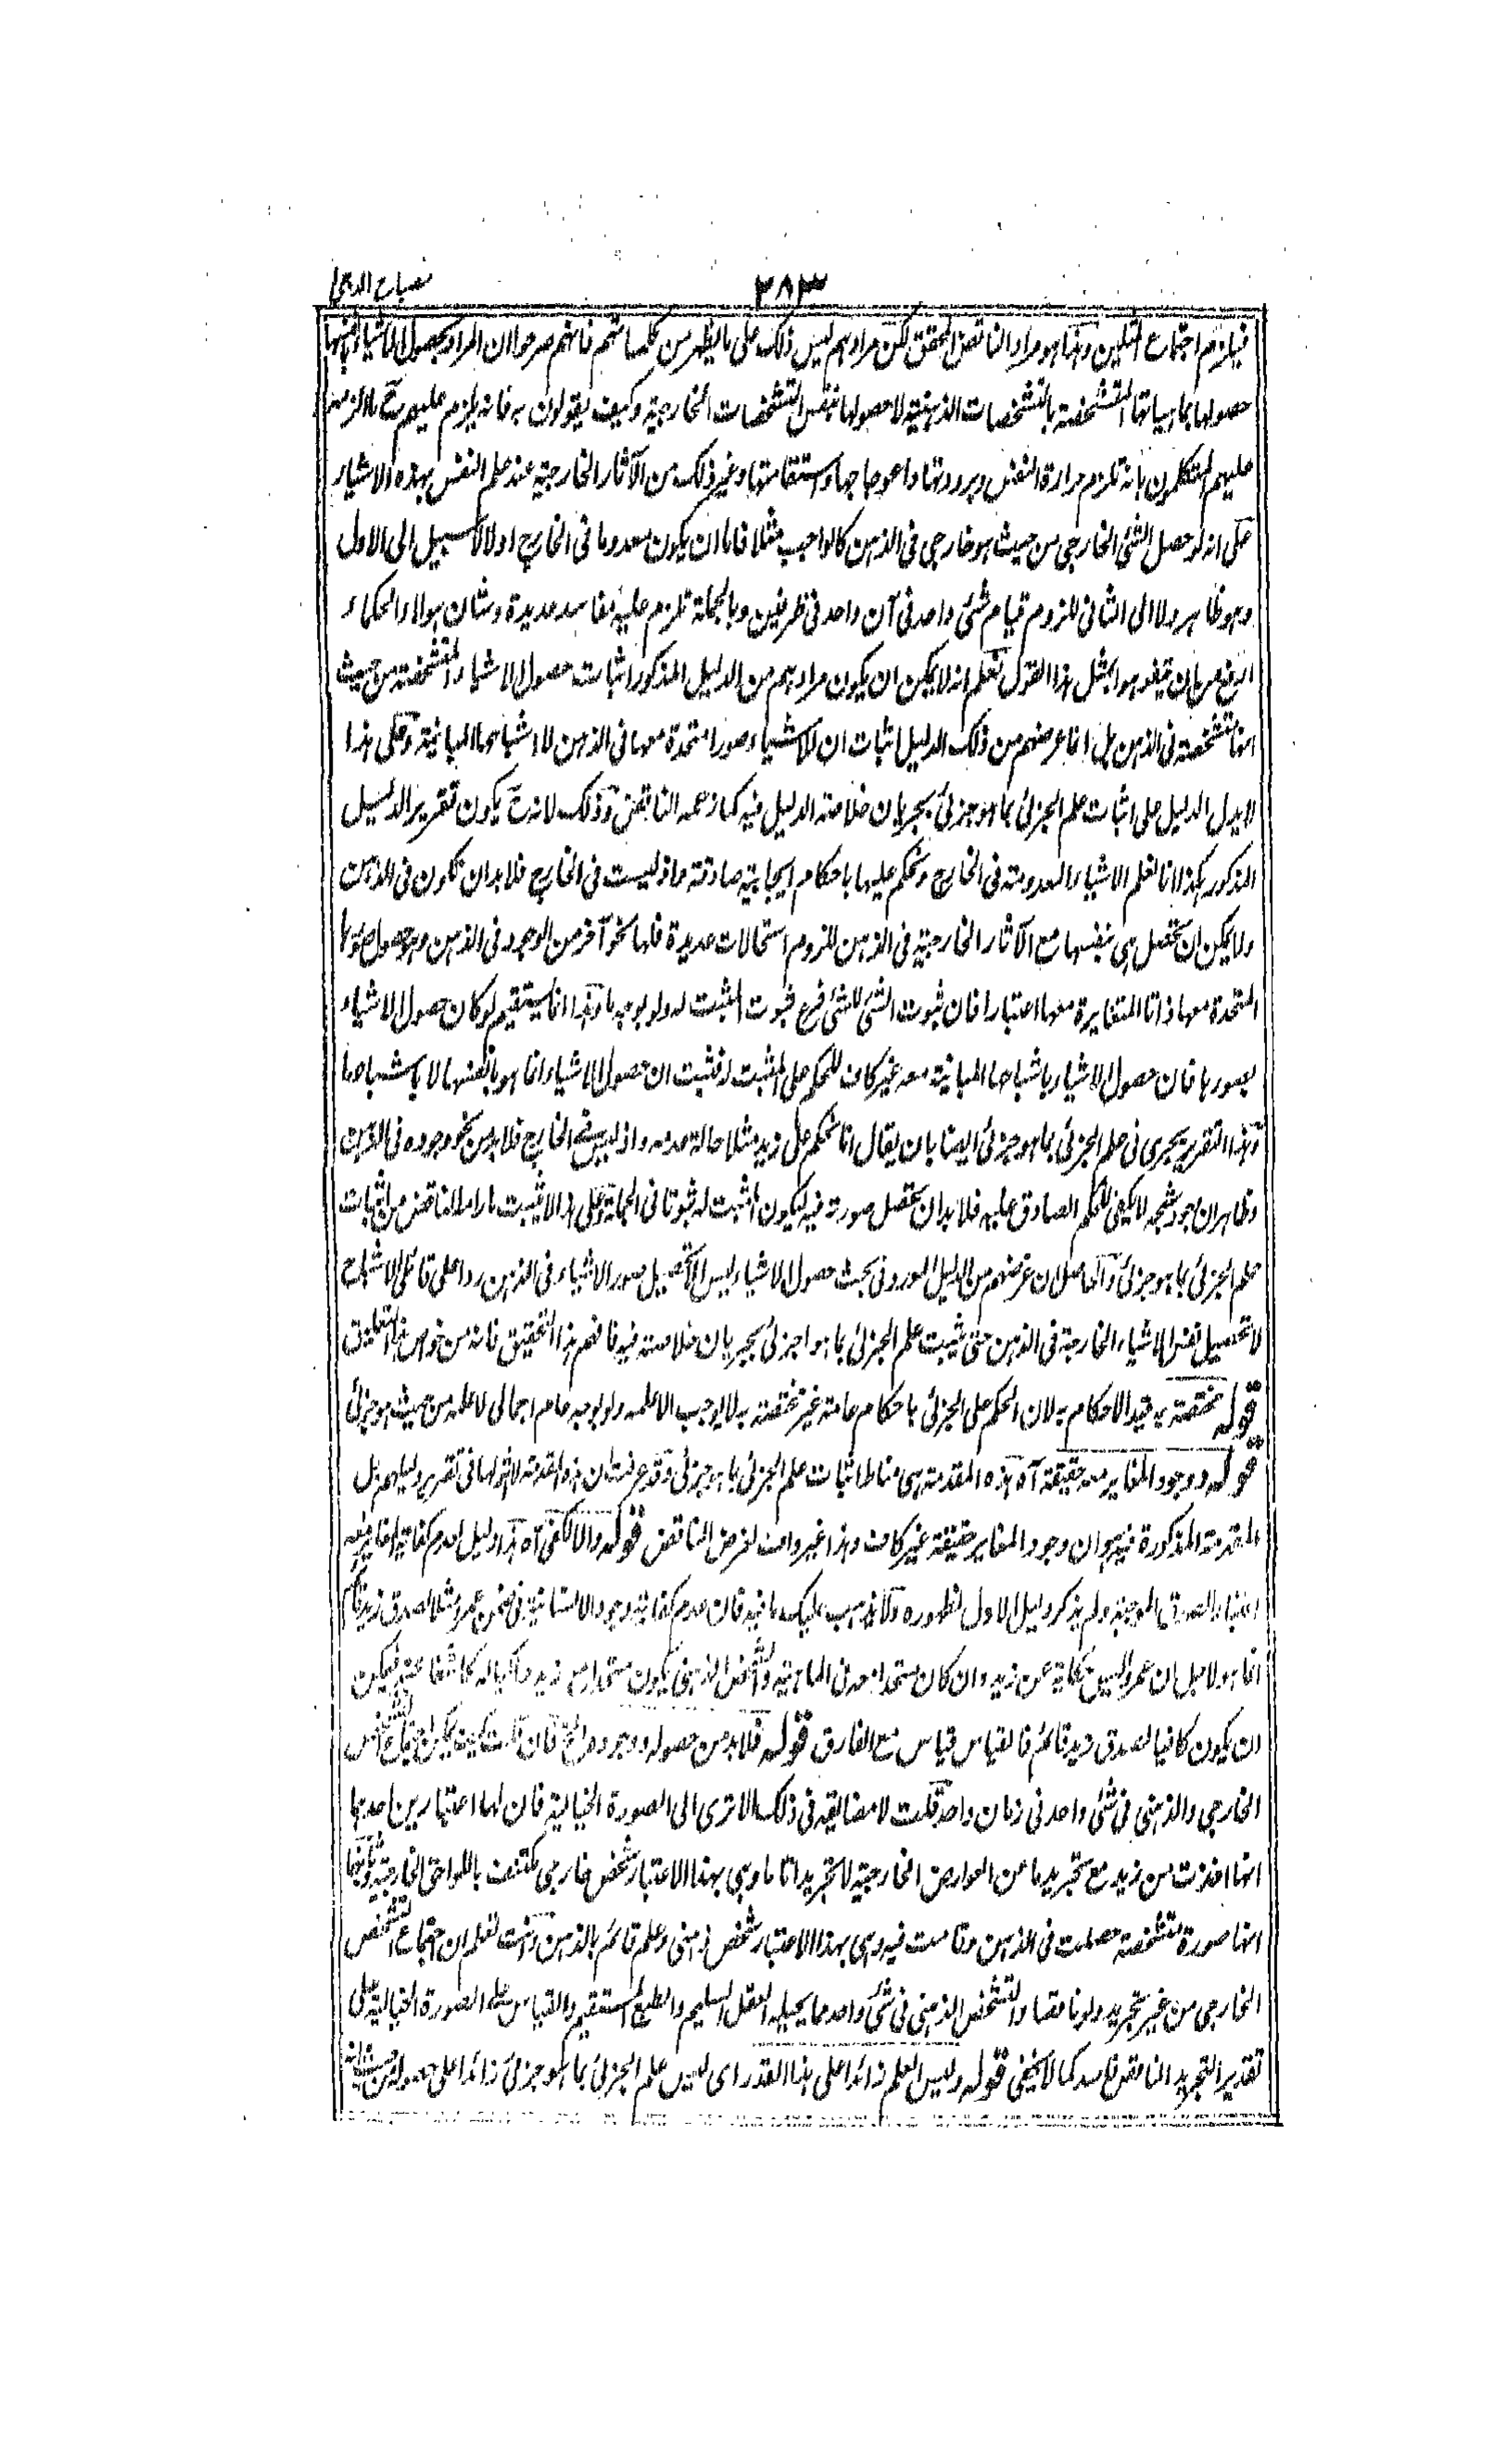 مصباح الدجى
٣٨٣
فيلزم اجتماع المثلين وهذا هو مراد الناقض المحقق لكن مرادهم ليس ذلك على ما يظهر من كلماتهم فانهم صرحوا ان المراد بحصول الاشياء بانفسها
حصولها بماهياتها المتشخصة بالتشخصات الذهنية لا حصولها بنفس التشخصات الخارجية وكيف يقولون به فانه يلزم عليهم ح ما الزمه
عليهم المتكلمون بانه تلزم حرارة النفس وبرودتها واعوجاجها واستقامتها وغير ذلك من الآثار الخارجية عند علم النفس بهذه الاشياء
على انه لو حصل الشئ الخارجي من حيث هو خارجي فى الذهن كالواجب مثلا فاما ان يكون معدوما فى الخارج او لا لا سبيل الى الاول
وهو ظاهر ولا الى الثانى للزوم قيام شئ واحد فى آن واحد فى ظرفين وبالجملة تلزم عليه مفاسد عديدة وشان هولاء الحكماء
ارفع من ان يتفوهوا بمثل هذا القول فعلم انه لا يمكن ان يكون مرادهم من الدليل المذكور اثبات حصول الاشياء المتشخصة من حيث
انها متشخصة فى الذهن بل انما غرضهم من ذلك الدليل اثبات ان للاشياء صورا متحدة معها فى الذهن لا اشباحها المباينة وعلى هذا
لا يدل الدليل على اثبات علم الجزئى بما هو جزئى بجريان خلاصة الدليل فيه كما زعمه الناقض وذلك لانه ح يكون تقرير الدليل
المذكور هكذا انا نعلم الاشياء المعدومة فى الخارج ونحكم عليها باحكام ايجابية صادقة واذ ليست فى الخارج فلا بد ان تكون فى الذهن
ولا يمكن ان تحصل هى بنفسها مع الآثار الخارجية فى الذهن للزوم استحالات عديدة فلها نحو آخر من الوجود فى الذهن وهو حصول صورها
المتحدة معها ذاتا المتغايرة معها اعتبارا فان ثبوت الشئ للشئ فرع ثبوت المثبت له ولو بوجه ما وهذا انما يستقيم لو كان حصول الاشياء
بصورها فان حصول الاشياء باشباحها المباينة معه غير كاف للحكم على المثبت له فثبت ان حصول الاشياء انما هو بانفسها لا باشباحها
وهذا التقرير يجرى فى علم الجزئى بما هو جزئى ايضا بان يقال انا نحكم على زيد مثلا حالة عدمه واذ ليس فى الخارج فلا بد من نحو وجوده فى الذهن
وظاهر ان وجود شبحه لا يكفى للحكم الصادق عليه فلا بد ان تحصل صورته فيه ليكون المثبت له ثبوتا فى الجملة وعلى هذا لا يثبت ما رامه الناقض من اثبات
علم الجزئى بما هو جزئى والحاصل ان غرضهم من الدليل المورد فى بحث حصول الاشياء ليس الا تحصيل صور الاشياء فى الذهن ردا على قائلى الاشباح
لا تحصيل نفس الاشياء الخارجية فى الذهن حتى يثبت علم الجزئى بما هو جزئى بجريان خلاصته فيه فافهم هذا التحقيق فانه من خواص هذا التعليق
قوله مختصة به قيد الاحكام به لان الحكم على الجزئى باحكام عامة غير مختصة به لا يوجب الا علمه ولو بوجه عام اجمالى لا علمه من حيث هو جزئى
قوله ووجود المغاير معه حقيقة آه هذه المقدمة هى مناط اثبات علم الجزئى بما هو جزئى وقد عرفت ان هذه المقدمة لا اثر لها فى تقرير دليلهم بل
المقدمة المذكورة فيه هو ان وجود المغاير حقيقة غير كاف وهذا غير واف لغرض الناقض قوله والا لكفى آه هذا دليل لعدم كفاية المغاير معه
اعتبارا لصدق الموجبة ولم يذكر دليل الاول لظهوره ولا يذهب عليك ما فيه فان عدم كفاية وجود الانسانية فى ضمن عمرو مثلا لصدق زيد قائم
انما هو لاجل ان عمروا ليس بحكاية عن زيد وان كان متحدا معه فى الماهية والشخص الذهنى يكون متحدا مع زيد وحكاية له كاشفا عنه فيمكن
ان يكون كافيا لصدق زيد قائم فالقياس قياس مع الفارق قوله فلا بد من حصوله ووجوده الخ فان قلت كيف يمكن اجتماع التشخص
الخارجى والذهنى فى شئ واحد فى زمان واحد قلت لا مضايقة فى ذلك الا ترى الى الصورة الخيالية فان لها اعتبارين احدهما
انها اخذت من زيد مع تجريدها عن العوارض الخارجية لا تجريدا تاما وهى بهذا الاعتبار شخص خارجى مكتنف باللواحق الخارجية وثانيهما
انها صورة متشخصة حصلت فى الذهن وقامت فيه وهى بهذا الاعتبار شخص ذهنى وعلم قائم بالذهن وانت تعلم ان اجتماع التشخص
الخارجى من غير تجريد ولو ناقصا والتشخص الذهنى فى شئ واحد مما يحيله العقل السليم والطبع المستقيم والقياس على الصورة الخيالية على
تقدير التجريد الناقص فاسد كما لا يخفى قوله وليس العلم زائدا على هذا القدر اى ليس علم الجزئى بما هو جزئى زائدا على حصوله من حيث انه